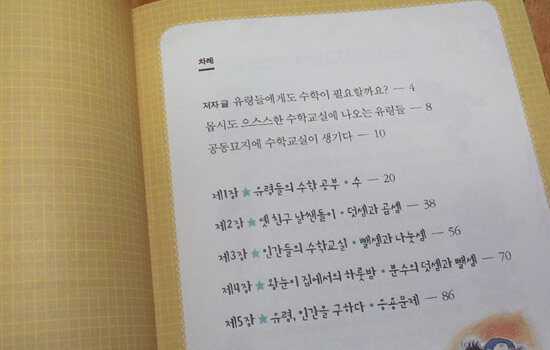 차례
저자 글 유령들에게도 수학이 필요할까요? — 4
몹시도 으스스한 수학교실에 나오는 유령들 — 8
공동묘지에 수학교실이 생기다 — 10
제1장 ★ 유령들의 수학 공부 • 수 — 20
제2장 ★ 옛 친구 날쌘돌이 • 덧셈과 곱셈 — 38
제3장 ★ 인간들의 수학교실 • 뺄셈과 나눗셈 — 56
제4장 ★ 왕눈이 집에서의 하룻밤 • 분수의 덧셈과 뺄셈 — 70
제5장 ★ 유령, 인간을 구하다 • 응용문제 — 86